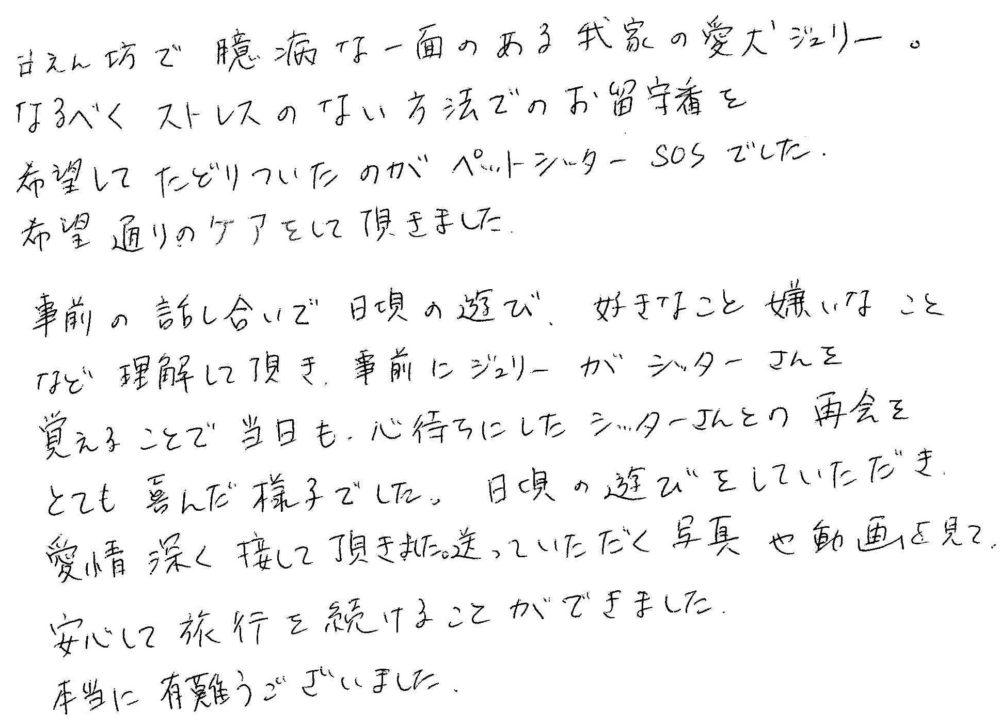 甘えん坊で臆病な一面のある我家の愛犬ジュリー。
なるべくストレスのない方法でのお留守番を
希望してたどりついたのがペットシッターSOSでした.
希望通りのケアをして頂きました.
事前の話し合いで日頃の遊び、好きなこと嫌いなこと
など理解して頂き、事前にジュリーがシッターさんを
覚えることで当日も、心待ちにしたシッターさんとの再会を
とても喜んだ様子でした。日頃の遊びをしていただき、
愛情深く接して頂きました。送っていただく写真や動画を見て、
安心して旅行を続けることができました.
本当に有難うございました.